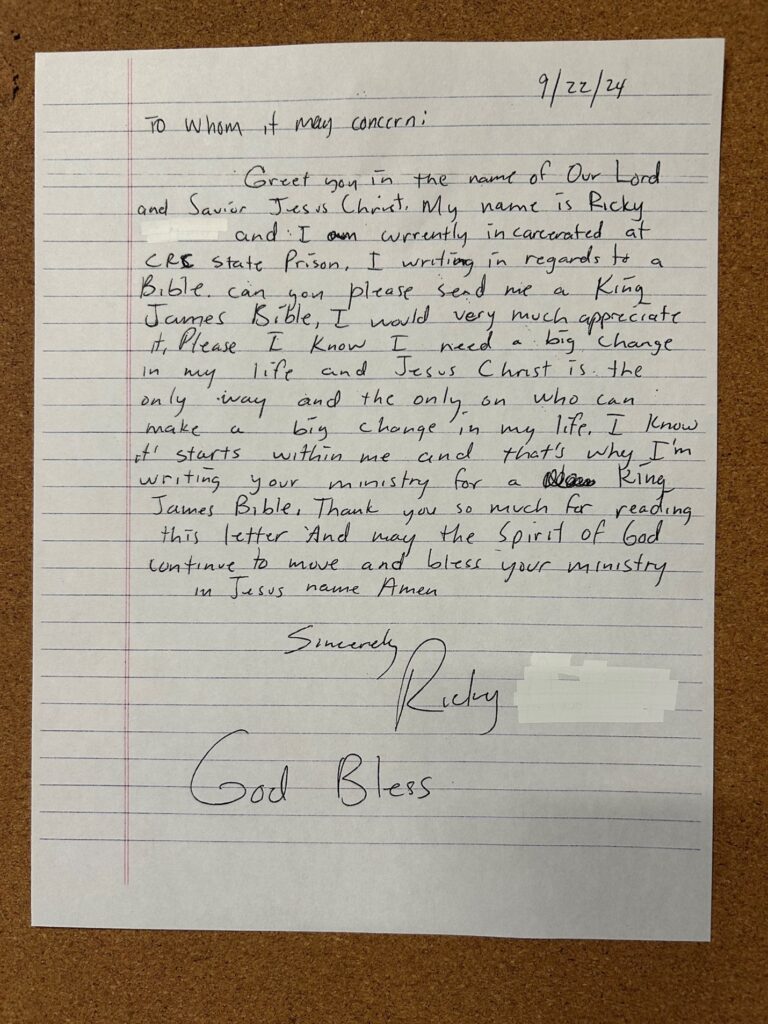 9/22/24
To Whom it may concern:
Greet you in the name of Our Lord
and Savior Jesus Christ. My name is Ricky
and I am currently incarcerated at
CRC state Prison. I writing in regards to a
Bible. can you please send me a King
James Bible, I would very much appreciate
it, Please I Know I need a big change
in my life and Jesus Christ is the
only way and the only on who can
make a big change in my life. I Know
it' starts within me and that's why I'm
writing your ministry for a King
James Bible. Thank you so much for reading
this letter And may the Spirit of God
continue to move and bless your ministry
in Jesus name Amen
Sincerely
Ricky
God Bless